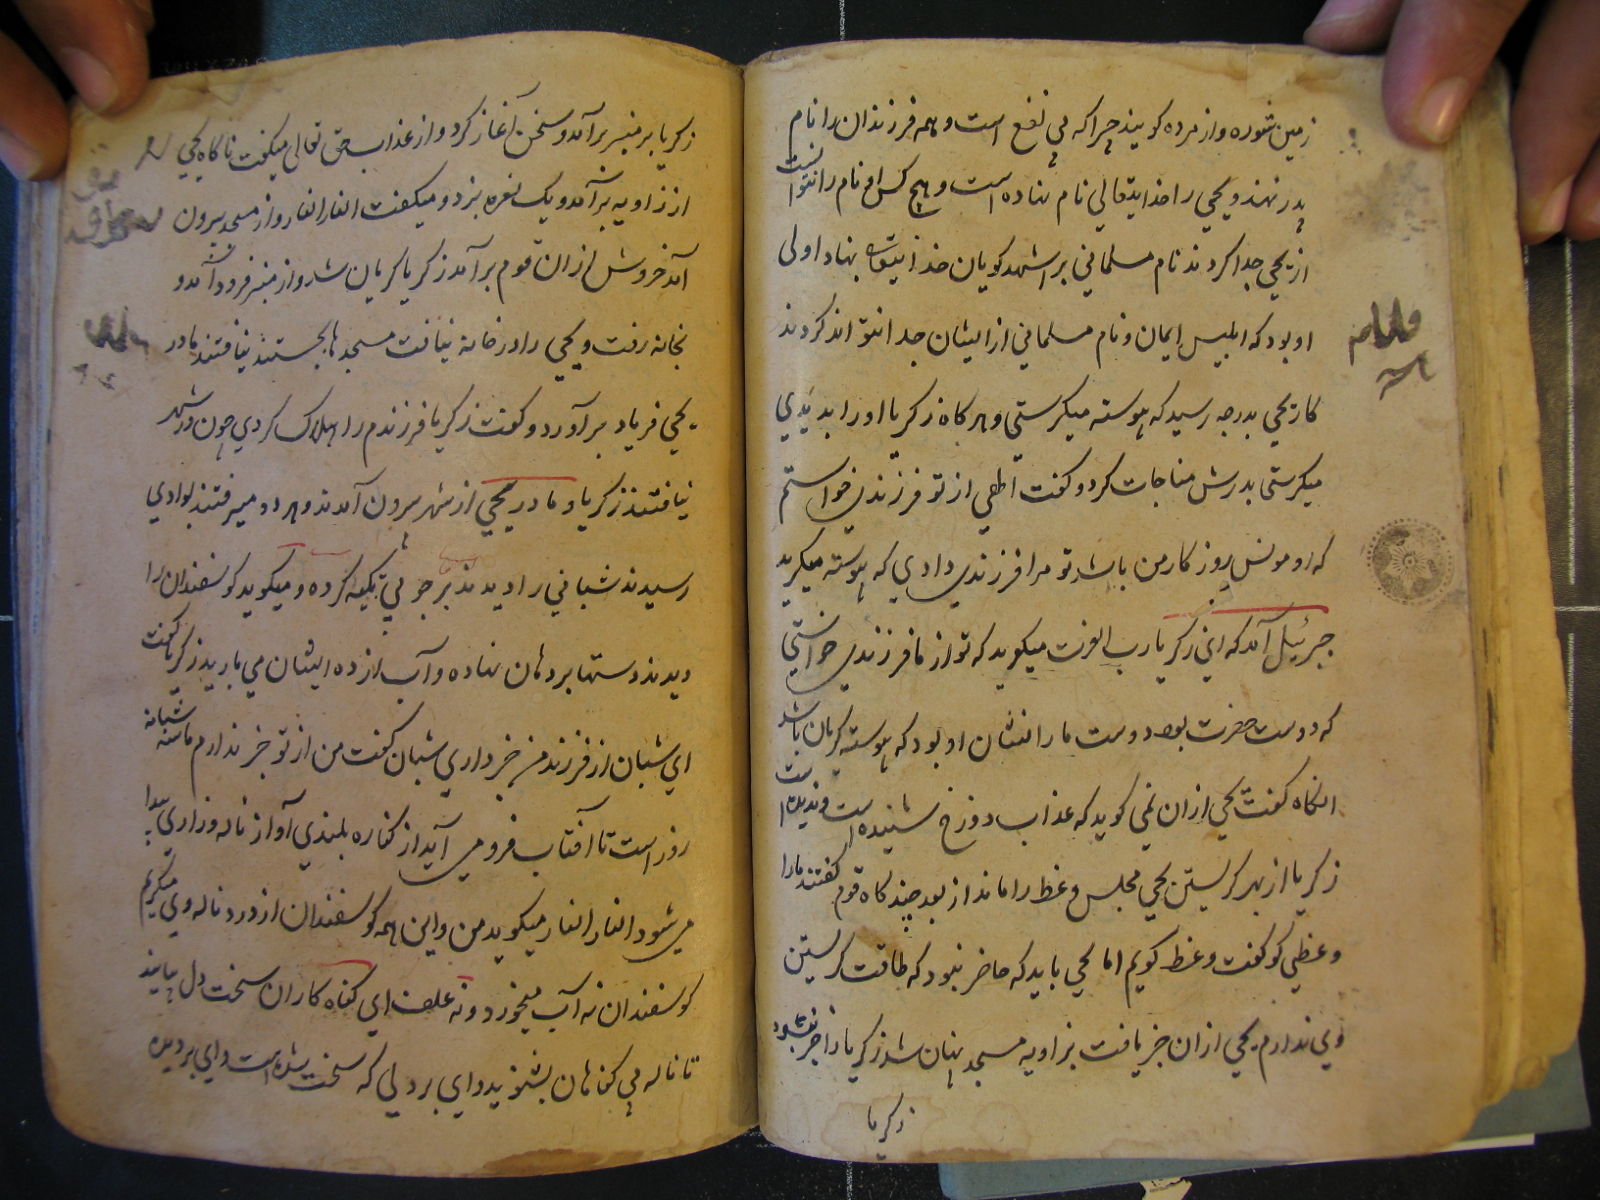 زمین شوره و از مرده کویند چرا که بی نفع است و همه فرزندان را نام
پدر نهند و یحیی را خدایتعالی نام نهاده است و هیچ کس این نام را نتوانست
از یحیی جدا کردند نام مسلمانی بر اشهد کویان خدایتعالی نهاد اولی
او بود که ابلیس ایمان و نام مسلمانی از ایشان جدا نتواند کردند
کار یحیی بدرجه رسید که پیوسته میکرستی و هر کاه زکریا او را بدیدی
میکرستی پدرش مناجات کرد و کفت الهی از تو فرزندی خواستم
که او مونس روزکار من باشد تو مرا فرزندی دادی که پیوسته میکرید
جبرئیل آمد که ای زکریا رب العزت میکوید که تو از ما فرزندی خواستی
که دوست حضرت بود دوست ما را نشان او بود که پیوسته کریان باشد
انکاه کفت یحیی از ان نمی کوید که عذاب دوزخ شنیده است و ندیده است
زکریا از بهر کریستن یحیی مجلس وعظ را ماند از بعد چند کاه قوم کفتند ما را
وعظی کو کفت وعظ کویم اما یحیی باید که حاضر نبود که طاقت کریستن
وی ندارم یحیی از ان خبر یافت بزاویه مسجد پنهان شد زکریا را خبر نبود
زکریا
زکریا بر منبر برآمد و سخن آغاز کرد و از عذاب حق تعالی میکفت ناکاه یحیی
از زاویه برآمد و یک نعره بزد و میکفت النار النار و از مسجد بیرون
آمد خروش از ان قوم برآمد زکریا کریان شد و از منبر فرود آمد و
بخانه رفت و یحیی را در خانه نیافت مسجدها بجستند نیافتند مادر
یحیی فریاد برآورد و کفت زکریا فرزندم را هلاک کردی چون در شهر
نیافتند زکریا و مادر یحیی از شهر بیرون آمدند و هر دو میرفتند بوادی
رسیدند شبانی را دیدند بر چوبی تکیه کرده و میکوید کوسفندان را
دیدند دستها بر دهان نهاده و آب از دیده ایشان می بارید زکریا کفت
ای شبان از فرزند من خبر داری شبان کفت من از تو خبر ندارم ما سه شبانه
روز است تا آفتاب فرو می آید از کناره بلندی آواز ناله و زاری پیدا
می شود النار النار میکوید من و این همه کوسفندان از درد ناله وی میکریم
کوسفندان نه آب میخورد و نه علف ای کناه کاران سخت دل بیایند
تا ناله بی کناهان بشنوید وای بر دلی که سخت شده است وای بر دیده